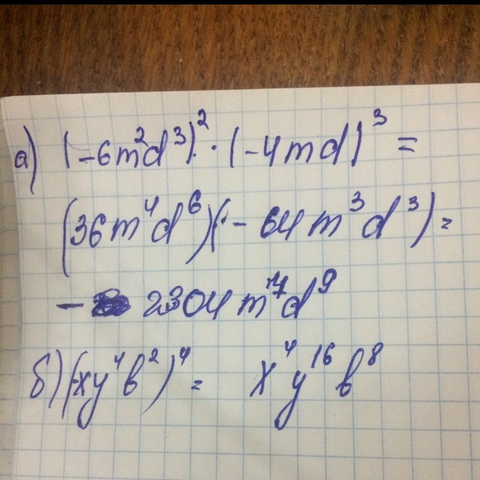 а) (-6m²d³)² · (-4md)³ =
(36m⁴d⁶)(-64m³d³) =
- 2304m⁷d⁹
б) (-xy⁴b²)⁴ = x⁴y¹⁶b⁸